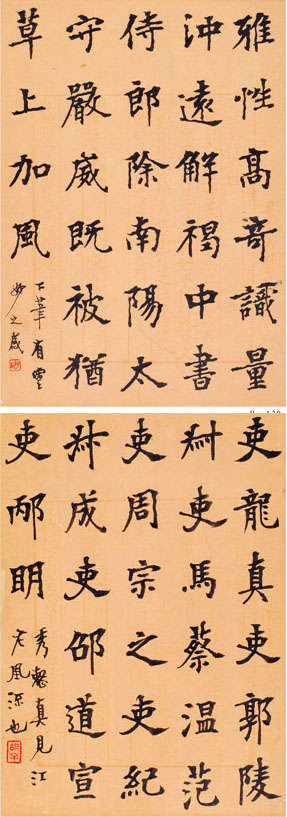 雅性高奇識量
沖遠解褐中書
侍郎除南陽太
守嚴威既被猶
草上加風
下筆有
妙之
吏龍真吏郭陵
吏馬蔡温范
吏周宗之吏紀
叔成吏邵道宣
吏邴明
秀整真見江
左風流也